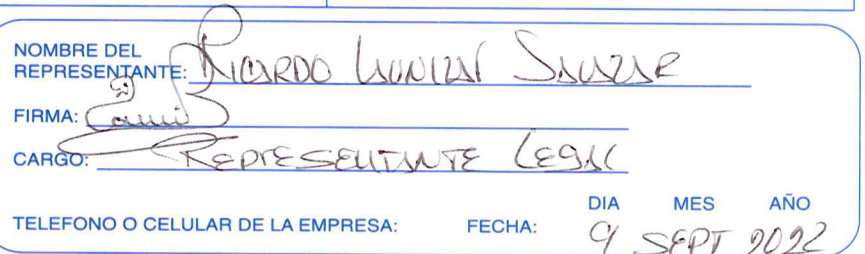 NOMBRE DEL
REPRESENTANTE: RICARDO SALAZAR
FIRMA:
CARGO: REPRESENTANTE LEGAL
DIA MES AÑO
TELEFONO O CELULAR DE LA EMPRESA: FECHA: 9 SEPT 2022